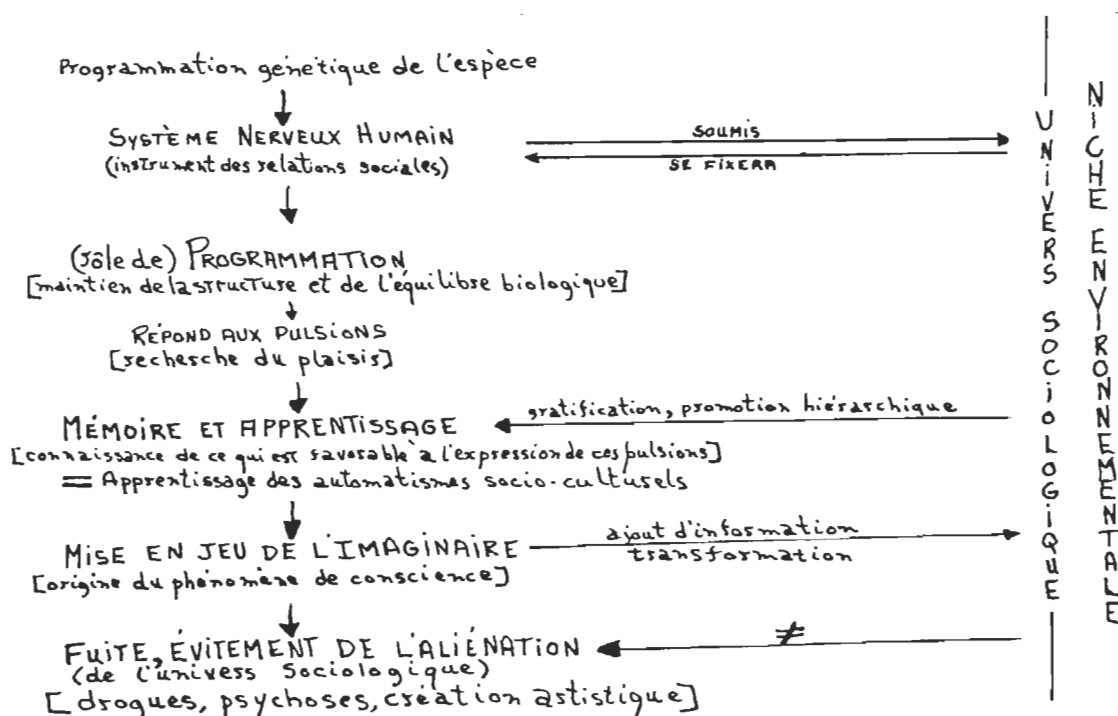 Programmation génétique de l'espèce
SYSTÈME NERVEUX HUMAIN
(instrument des relations sociales)
SOUMIS
SE FIXERA
(rôle de) PROGRAMMATION
[maintien de la structure et de l'équilibre biologique]
RÉPOND AUX PULSIONS
[recherche du plaisir]
gratification, promotion hiérarchique
MÉMOIRE ET APPRENTISSAGE
[connaissance de ce qui est favorable à l'expression de ces pulsions]
= Apprentissage des automatismes socio-culturels
MISE EN JEU DE L'IMAGINAIRE
[origine du phénomène de conscience]
ajout d'information
transformation
FUITE, ÉVITEMENT DE L'ALIÉNATION
(de l'univers sociologique)
[drogues, psychoses, création artistique]
≠
UNIVERS SOCIOLOGIQUE
NICHE ENVIRONNEMENTALE